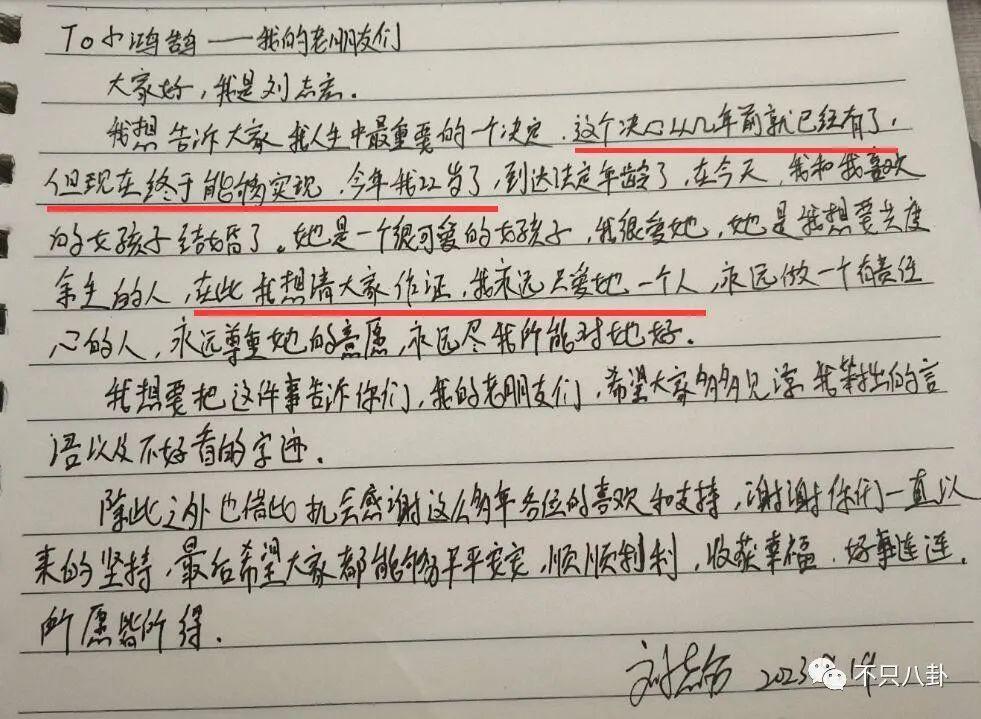 To小鸿鹄——我的老朋友们
大家好，我是刘志宏．
我想告诉大家我人生中最重要的一个决定．这个决心从几年前就已经有了，
但现在终于能够实现，今年我22岁了，到达法定年龄了，在今天，我和我喜欢
的女孩子结婚了。她是一个很可爱的女孩子，我很爱她，她是我想要共度
余生的人，在此我想请大家作证，我永远只爱她一个人，永远做一个有责任
心的人，永远尊重她的意愿，永远尽我所能对她好．
我想要把这件事告诉你们，我的老朋友们，希望大家多多见谅我笨拙的言
语以及不好看的字迹．
除此之外也借此机会感谢这么多年各位的喜欢和支持，谢谢你们一直以
来的坚持，最后希望大家都能够平平安安，顺顺利利，收获幸福．好事连连．
所愿皆所得．
刘志宏 2023
不只八卦